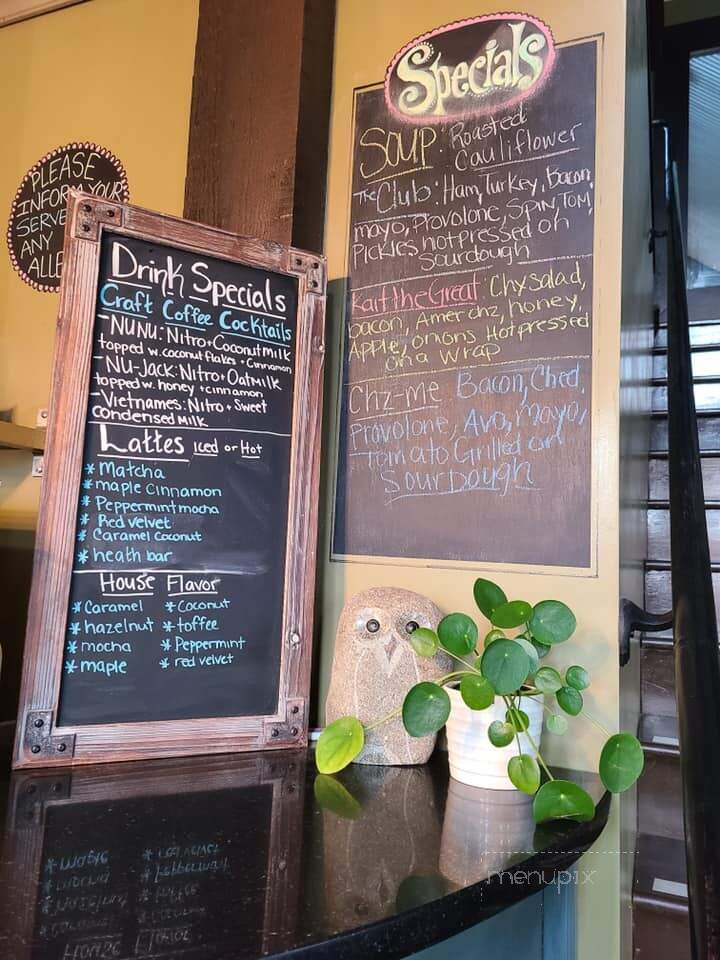 PLEASE
INFORM YOUR
SERVE
ANY
ALLE
Drink Specials
Craft Coffee Cocktails
- NUNU: Nitro + Coconut milk
topped w. coconut flakes + Cinnamon
- NU-JACK: Nitro + Oatmilk
topped w. honey + cinnamon
- Vietnames: Nitro + Sweet
condensed milk
Lattes Iced or Hot
* Matcha
* maple Cinnamon
* Peppermint mocha
* Red velvet
* Caramel Coconut
* heath bar
House Flavor
* Caramel
* hazelnut
* mocha
* maple
* Coconut
* toffee
* Peppermint
* red velvet
Specials
SOUP: Roasted
Cauliflower
The Club: Ham, Turkey, Bacon
mayo, Provolone, Spin, Tom,
Pickles hot pressed on
Sourdough
Kait the Great: Chx salad,
bacon, Amer chz, honey,
Apple, onions Hot pressed
on a wrap
Chz-me Bacon, Ched,
Provolone, Avo, Mayo,
Tomato Grilled on
Sourdough
menupix